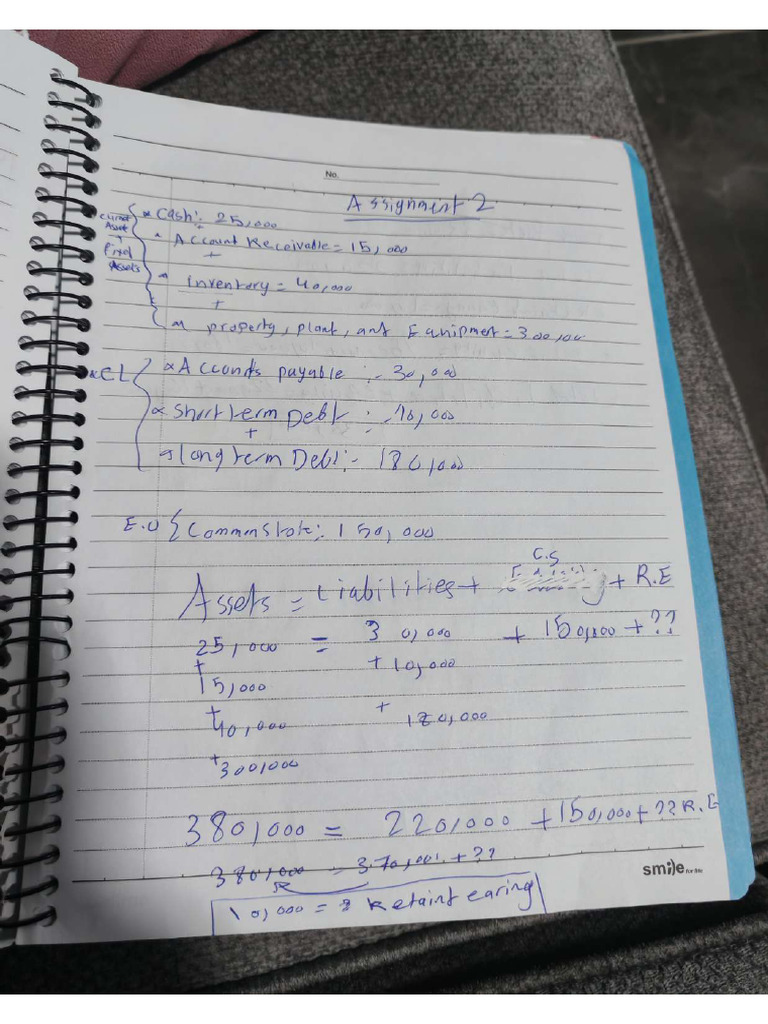 No.
Assignment 2
Current Asset + Fixed Assets
* Cash: 25,000
+
* Account Receivable = 15,000
+
* Inventory = 40,000
+
* property, plant, ant Equipment = 300,000
* CL
* Accounds payable :- 30,000
* Short term Debt :- 10,000
+
* long term Debt:- 180,000
E.O { Common Stok: 150,000
C.S
Assets = Liabilities + + R.E
25,000 = 30,000 + 150,000 + ??
+ + 10,000
15,000
+ +
40,000 180,000
+
300,000
380,000 = 220,000 + 150,000 + ?? R.E
380,000 - 370,000 + ??
10,000 = Retaint earing
smile for this